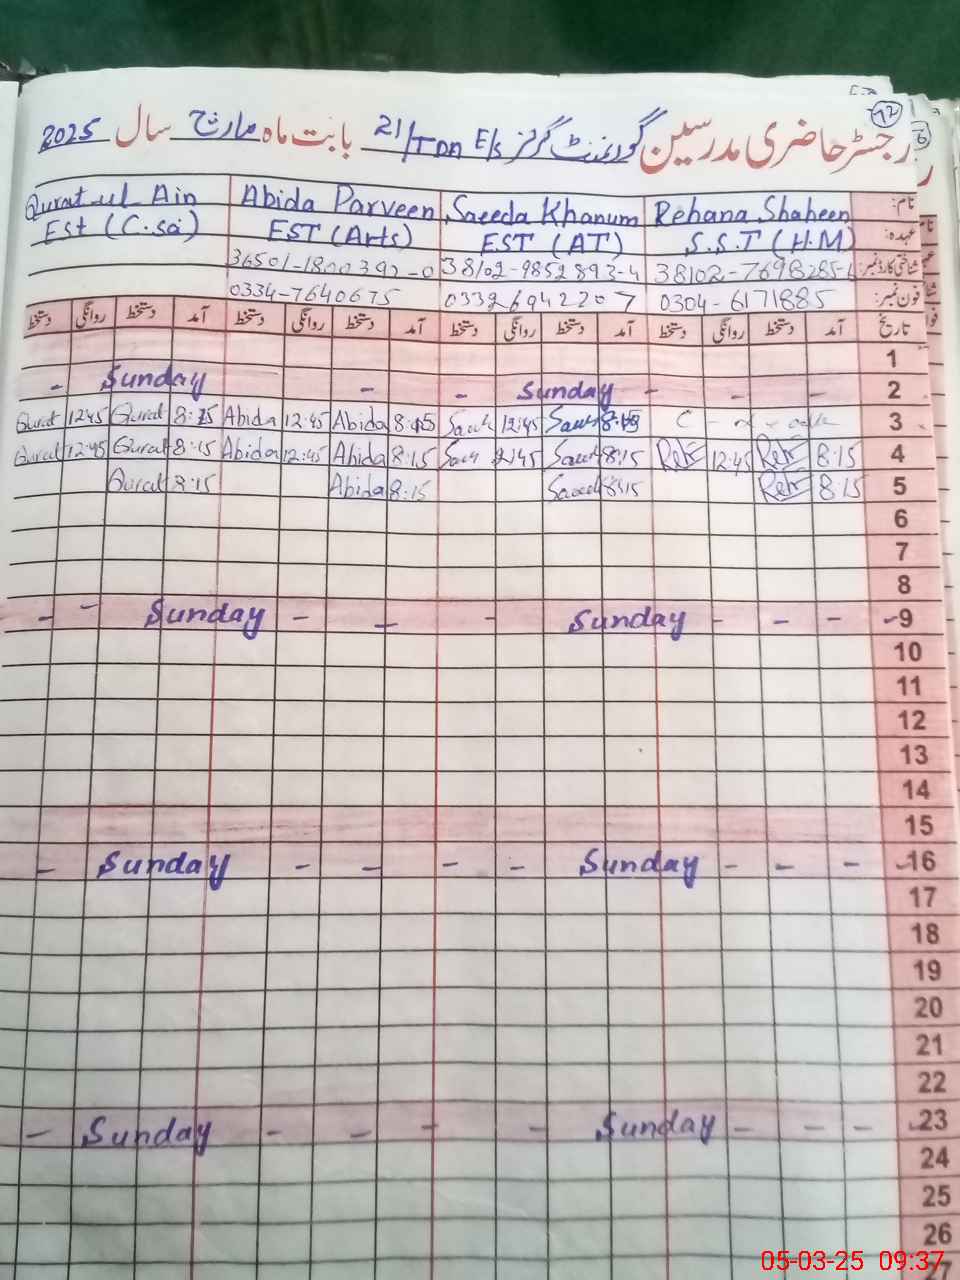 72
رجسٹر حاضری مدرسین گورنمنٹ گرلز E/S 21/TDA بابت ماہ مارچ سال 2025
نام: Rehana Shaheen Saeeda Khanum Abida Parveen Qurat ul Ain
عہدہ: S.S.T (H.M) EST (AT) EST (Arts) Est (C.sci)
شناختی کارڈ نمبر: 38102-9852893-4
فون نمبر: 0304-6171885 03326942207 0334-7640675
تاریخ آمد دستخط روانگی دستخط آمد دستخط روانگی دستخط آمد دستخط روانگی دستخط آمد دستخط روانگی دستخط
1
- Sunday - - Sunday - - - 2
Qurat 12:45 Qurat 8:15 Abida 12:45 Abida 8:15 12:45 8:15 3
Qurat 12:45 Qurat 8:15 Abida 12:45 Abida 8:15 12:45 8:15 12:45 8:15 4
Qurat 8:15 Abida 8:15 Saeed 8:15 8:15 5
6
7
8
- - Sunday - - - Sunday - - - 9
10
11
12
13
14
15
- Sunday - - - - Sunday - - - 16
17
18
19
20
21
22
- Sunday - - - - Sunday - - - 23
24
25
26
27
05-03-25 09:37